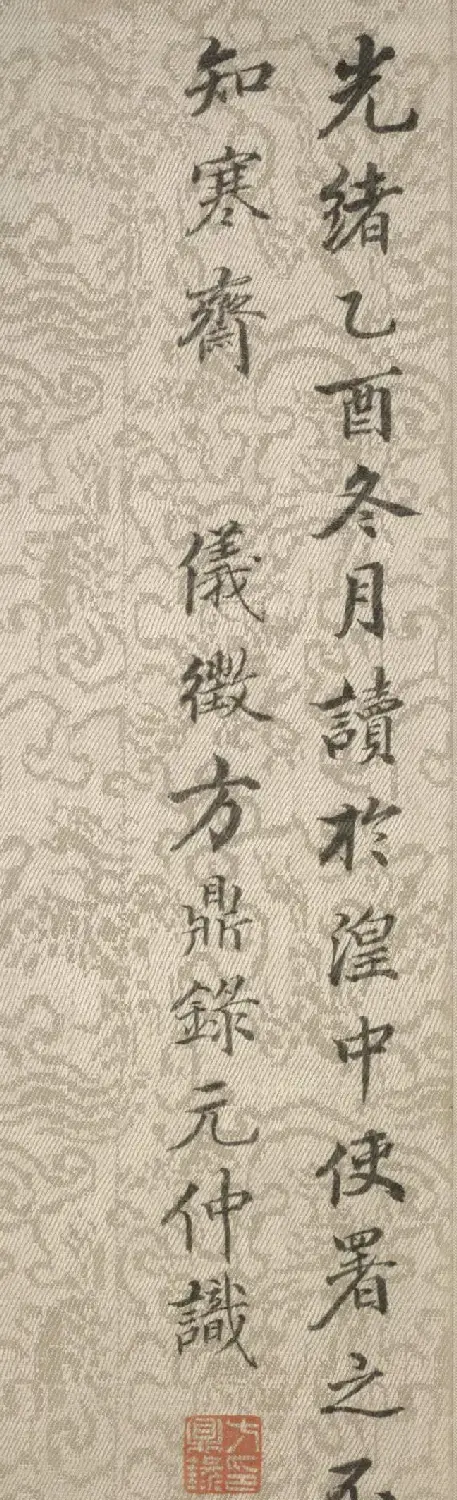 光緒乙酉冬月讀於湟中使署之不
知寒齋　儀徵方鼎錄元仲識
方鼎錄印